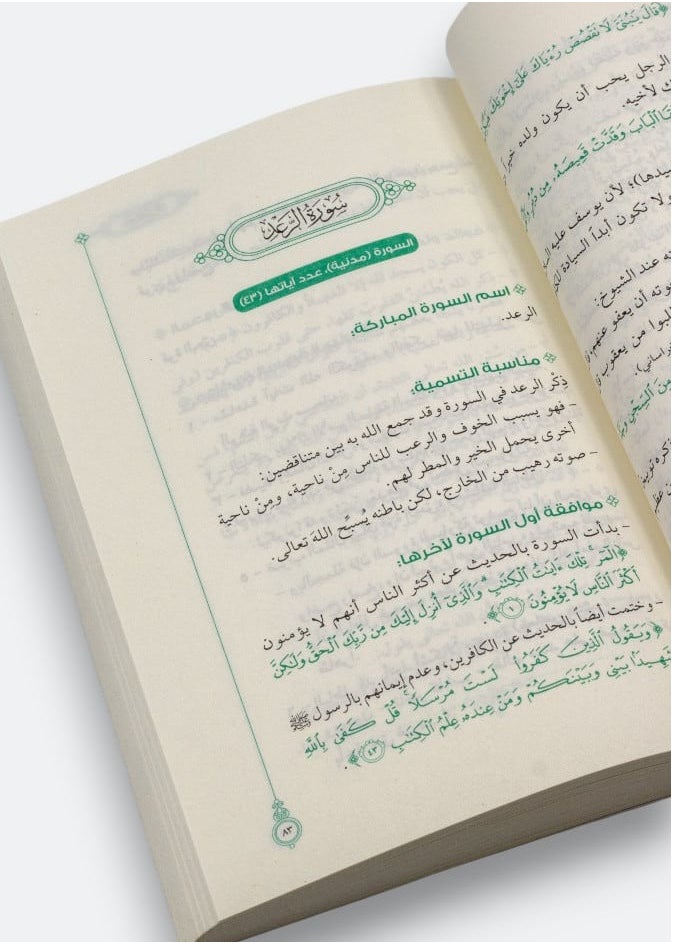 سُورَةُ الرَّعْدِ
السورة (مدنية)، عدد آياتها (٤٣)
اسم السورة المباركة:
الرعد.
مناسبة التسمية:
ذِكْر الرعد في السورة وقد جمع الله به بين متناقضين:
- فهو يسبب الخوف والرعب للناس مِنْ ناحية، ومِنْ ناحية
أخرى يحمل الخير والمطر لهم.
- صوته رهيب من الخارج، لكن باطنه يُسبِّح اللهَ تعالى.
موافقة أول السورة لآخرها:
- بدأت السورة بالحديث عن أكثر الناس أنهم لا يؤمنون
﴿الٓمٓرۚ تِلۡكَ ءَايَٰتُ ٱلۡكِتَٰبِۗ وَٱلَّذِيٓ أُنزِلَ إِلَيۡكَ مِن رَّبِّكَ ٱلۡحَقُّ وَلَٰكِنَّ
أَكۡثَرَ ٱلنَّاسِ لَا يُؤۡمِنُونَ ١﴾.
- وختمت أيضاً بالحديث عن الكافرين، وعدم إيمانهم بالرسول ﷺ
﴿وَيَقُولُ ٱلَّذِينَ كَفَرُواْ لَسۡتَ مُرۡسَلٗاۚ قُلۡ كَفَىٰ بِٱللَّهِ
شَهِيدَۢا بَيۡنِي وَبَيۡنَكُمۡ وَمَنۡ عِندَهُۥ عِلۡمُ ٱلۡكِتَٰبِ ٤٣﴾.
٨٣
﴿قَالَ يَٰبُنَيَّ لَا تَقۡصُصۡ رُءۡيَاكَ عَلَىٰٓ إِخۡوَتِكَ
الرجل يحب أن يكون ولده
لأخيه.
ٱلۡبَابَ وَقَدَّتۡ قَمِيصَهُۥ مِن دُبُرٖ
لأن يوسف عليه
ولا تكون أبداً السيادة
عند الشيوخ:
أن يعفو عنهم
من يعقوب
مِنَ ٱلسِّجۡنِ